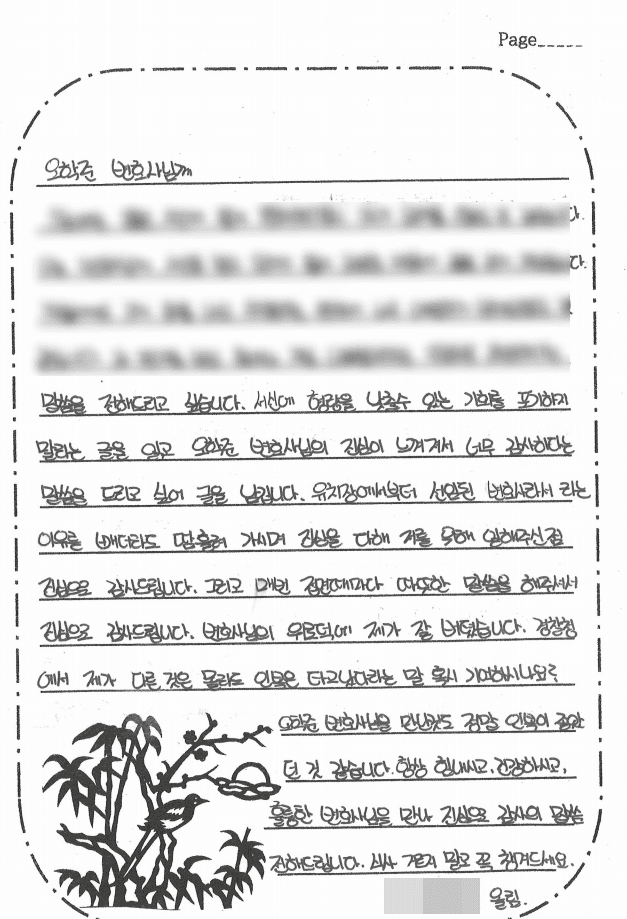 Page
오학준 변호사님께
다.
다.
말씀을 전해드리고 싶습니다. 서신에 형량을 낮출수 있는 기회를 포기하지
말라는 글을 읽고 오학준 변호사님의 진심이 느껴져서 너무 감사하다는
말씀을 드리고 싶어 글을 남깁니다. 유치장에서부터 선임된 변호사라서 라는
이유를 빼더라도 땀흘려 가시며 진심을 다해 저를 위해 일해주신점
진심으로 감사드립니다. 그리고 매번 접견때마다 따뜻한 말씀을 해주셔서
진심으로 감사드립니다. 변호사님의 위로덕에 제가 잘 버텼습니다. 경찰청
에서 제가 다른 것은 몰라도 인복은 타고났다라는 말 혹시 기억하시나요?
오학준 변호사님을 만난것도 정말 인복이 좋았
던 것 같습니다. 항상 힘내시고, 건강하시고,
훌륭한 변호사님을 만나 진심으로 감사의 말씀
전해드립니다. 식사 거르지 말고 꼭 챙겨드세요.
올림.